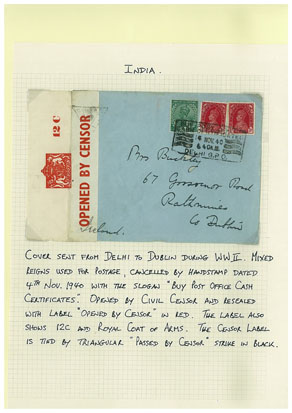 INDIA.
12 C
OPENED BY CENSOR
4 NOV. 40
DELHI G.P.O.
Mrs Buckley
67 Grosvenor Road
Rathmines
Co Dublin
Ireland.
COVER SENT FROM DELHI TO DUBLIN DURING WW II. MIXED
REIGNS USED FOR POSTAGE, CANCELLED BY HANDSTAMP DATED
4TH NOV. 1940 WITH THE SLOGAN "BUY POST OFFICE CASH
CERTIFICATES". OPENED BY CIVIL CENSOR AND RESEALED
WITH LABEL "OPENED BY CENSOR" IN RED. THE LABEL ALSO
SHOWS 12C AND ROYAL COAT OF ARMS. THE CENSOR LABEL
IS TIED BY TRIANGULAR "PASSED BY CENSOR" STRIKE IN BLACK.